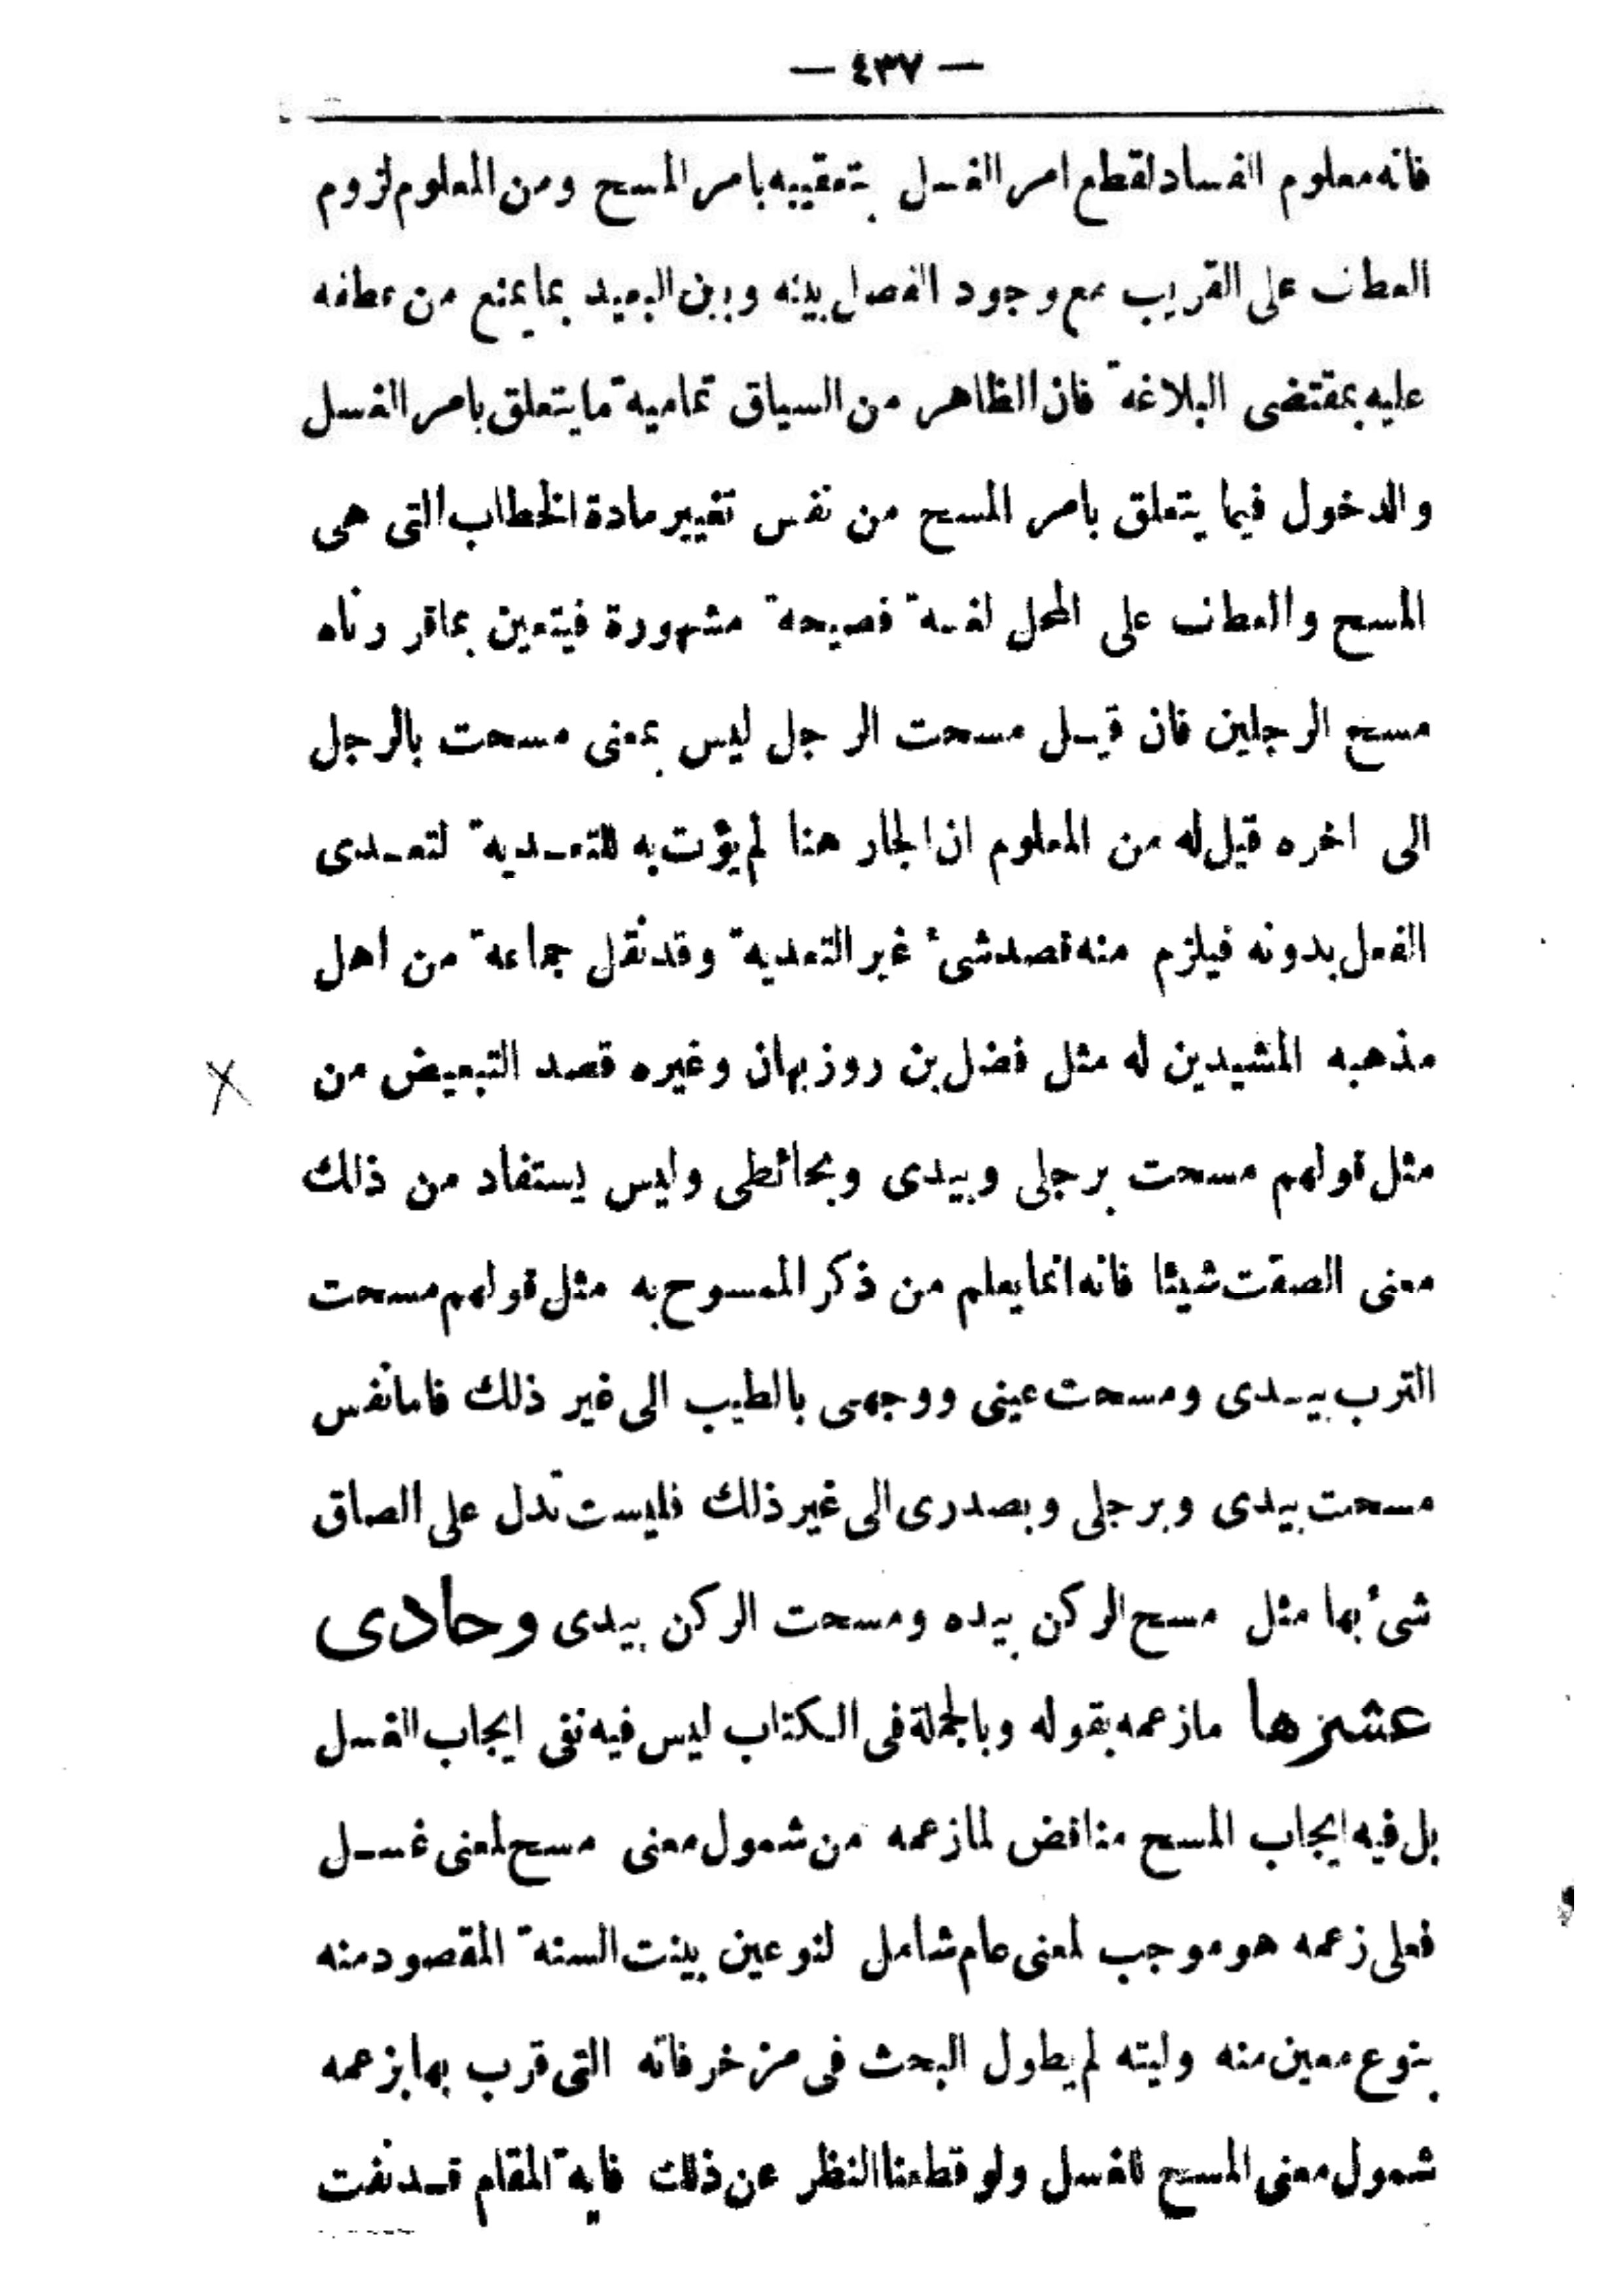 — ٤٣٧ —
فانه معلوم الفساد لقطع امر الغسل بتعقيبه بامر المسح ومن المعلوم لزوم
العطف على القريب مع وجود الفصل بينه وبين البعيد بما يمنع من عطفه
عليه بمقتضى البلاغة فان الظاهر من السياق تمامية ما يتعلق بامر الغسل
والدخول فيما يتعلق بامر المسح من نفس تغيير مادة الخطاب التى هى
المسح والعطف على المحل لغة فصيحة مشهورة فيتعين بما قررناه
مسح الرجلين فان قيل مسحت الرجل ليس بمعنى مسحت بالرجل
الى اخره قيل له من المعلوم ان الجار هنا لم يؤت به للتعدية لتعدى
الفعل بدونه فيلزم منه قصد شىء غير التعدية وقد نقل جماعة من اهل
مذهبه المشيدين له مثل فضل بن روزبهان وغيره قصد التبعيض من
مثل قولهم مسحت برجلى وبيدى وبحائطى وليس يستفاد من ذلك
معنى الصقت شيئا فانه انما يعلم من ذكر الممسوح به مثل قولهم مسحت
الترب بيدى ومسحت عينى ووجهى بالطيب الى غير ذلك فاما نفس
مسحت بيدى وبرجلى وبصدرى الى غير ذلك فليست تدل على الصاق
شىء بها مثل مسح الركن بيده ومسحت الركن بيدى وحادى
عشرها مازعمه بقوله وبالجملة فى الكتاب ليس فيه نفى ايجاب الغسل
بل فيه ايجاب المسح مناقض لمازعمه من شمول معنى مسح لمعنى غسل
فعلى زعمه هو موجب لمعنى عام شامل لنوعين بينت السنة المقصود منه
بنوع معين منه وليته لم يطول البحث فى مزخرفاته التى قرب بها بزعمه
شمول معنى المسح للغسل ولو قطعنا النظر عن ذلك فاية المقام قد نفت